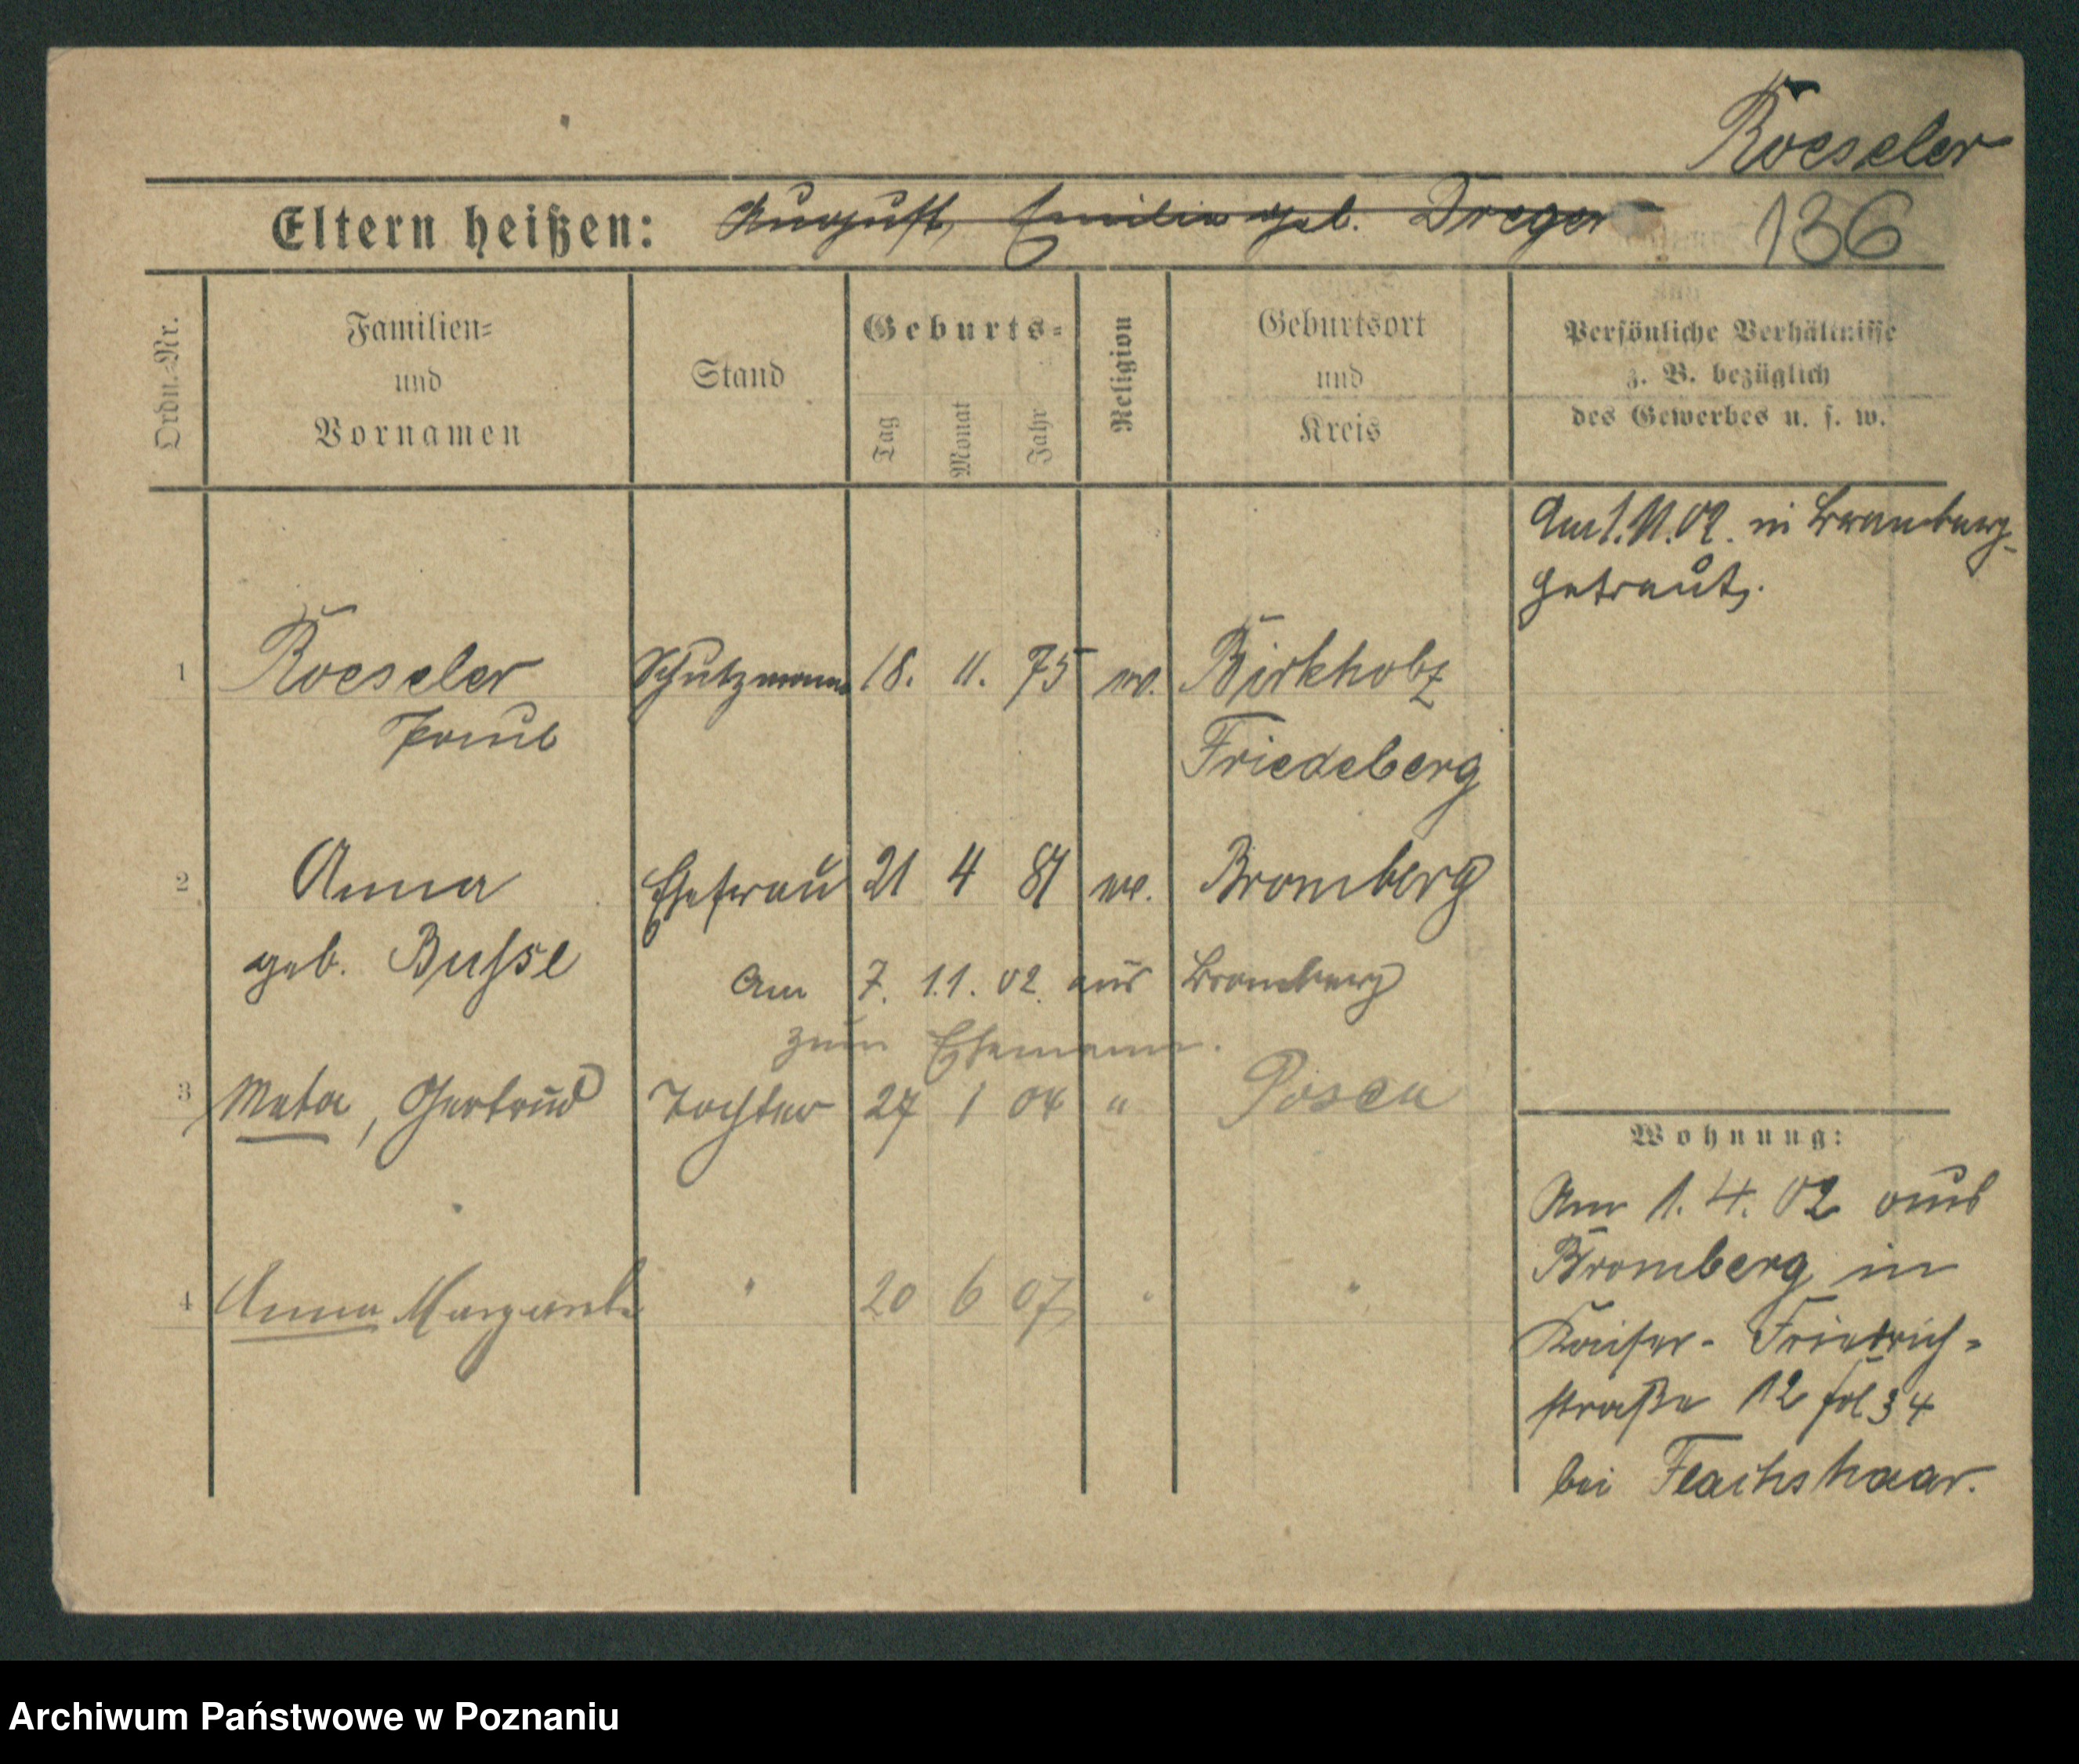 Roeseler
Eltern heißen: August, Emilie geb. Dreger 136
Ordn.-Nr.
Familien-
und
Vornamen
Stand
Geburts-
Tag
Monat
Jahr
Religion
Geburtsort
und
Kreis
Persönliche Verhältnisse
z. B. bezüglich
des Gewerbes u. s. w.
Am 1.11.02. in Bromberg
getraut.
1 Roeseler Schutzmann 18. 11. 75 ev. Birkholz
Paul Friedeberg
2 Anna Ehefrau 21 4 81 ev. Bromberg
geb. Busse
Am 7. 11. 02. aus Bromberg
zum Ehemann.
3 Meta, Gertrud Tochter 27 1 04 " Posen
4 Anna Margarete " 20 6 07 " "
Wohnung:
Am 1. 4. 02 aus
Bromberg in
Kaiser-Friedrich-
straße 12 fol 34
bei Flachshaar.
Archiwum Państwowe w Poznaniu